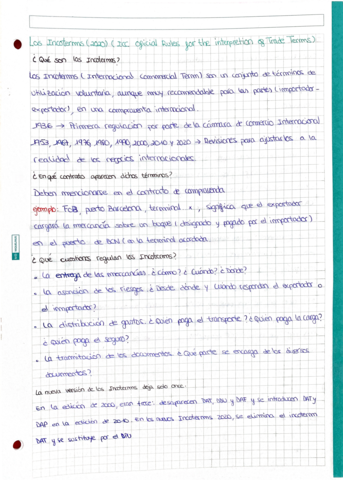 Los Incoterms (2020) (Icc. Official Rules for the interpretion of Trade Terms)
¿Qué son los Incoterms?
Los Incoterms (International Commercial Term) son un conjunto de términos de
utilización voluntaria, aunque muy recomendable para las partes (importador-
exportador), en una compraventa internacional.
1936 → Primera regulación por parte de la cámara de comercio Internacional
1953, 1967, 1976, 1980, 1990, 2000, 2010 y 2020 → Revisiones para ajustarlos a la
realidad de los negocios internacionales
¿En qué contrato aparecen dichos términos?
Deben mencionarse en el contrato de compraventa.
Ejemplo: FOB, puerto Barcelona, terminal x, significa que el exportador
cargará la mercancía sobre un buque (designado y pagado por el importador)
en el puerto de BCN (en la terminal acordada.
¿Qué cuestiones regulan los Incoterms?
• La entrega de las mercancías ¿cómo? ¿Cuándo? ¿Dónde?
• La asunción de los riesgos ¿Desde dónde y cuando responden el exportador o
el importador?
• La distribución de gastos. ¿Quien paga el transporte? ¿Quien paga la carga?
¿Quien paga el seguro?
• La tramitación de los documentos ¿Qué parte se encarga de los diversos
documentos?
La nueva versión de los Incoterms deja solo once.
En la edición de 2000, eran trece: desaparecen DAF, DDU y DAF y se introducen DAT y
DAP en la edición de 2010. en los nuevos Incoterms 2020, se elimina el incoterm
DAT y se sustituye por el DPU